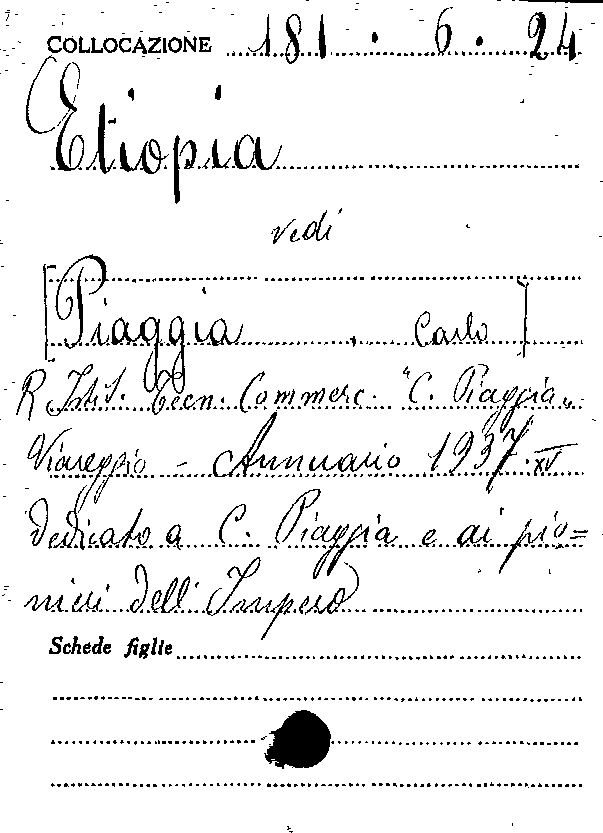 COLLOCAZIONE 181 . 6 . 24
Etiopia
vedi
[Piaggia, Carlo]
R. Istit. Tecn. Commerc. "C. Piaggia„
Viareggio - Annuario 1937. XV
Dedicato a C. Piaggia e ai pio=
nieri dell'Impero
Schede figlie